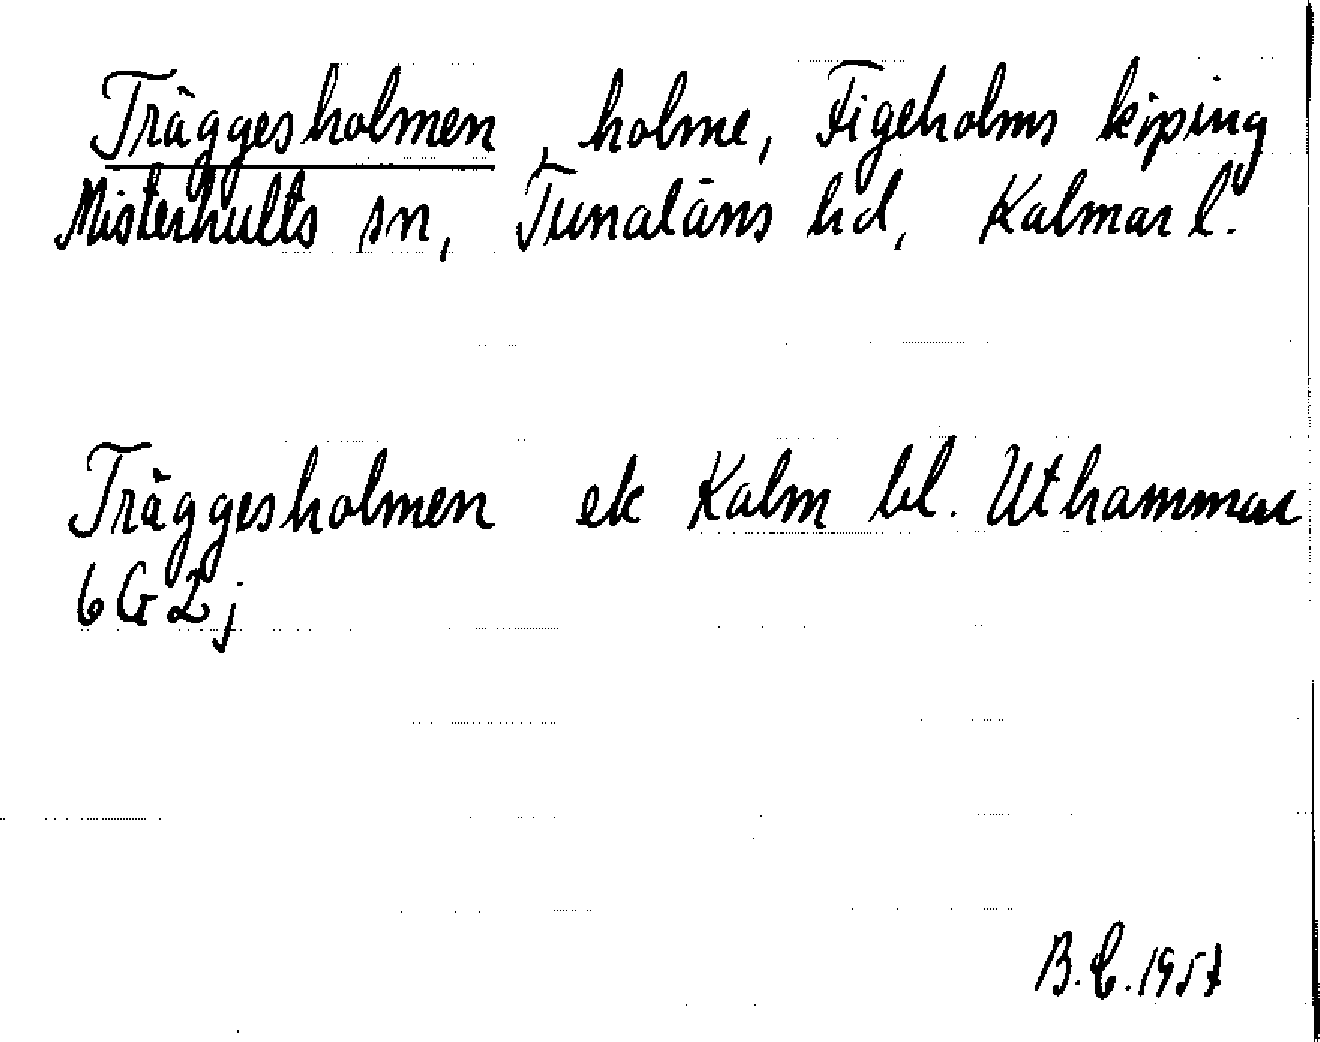 Träggesholmen, holme, Figeholms köping
Misterhults sn, Tunaläns hd, Kalmar l.
Träggesholmen ek Kalm bl. Uthammar
6 G 2 j
B.E. 1957